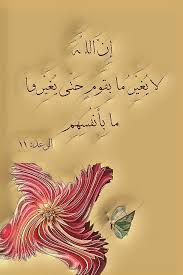 إن الله
لا يغير ما بقوم حتى يغيروا
ما بأنفسهم
الرعد ١١